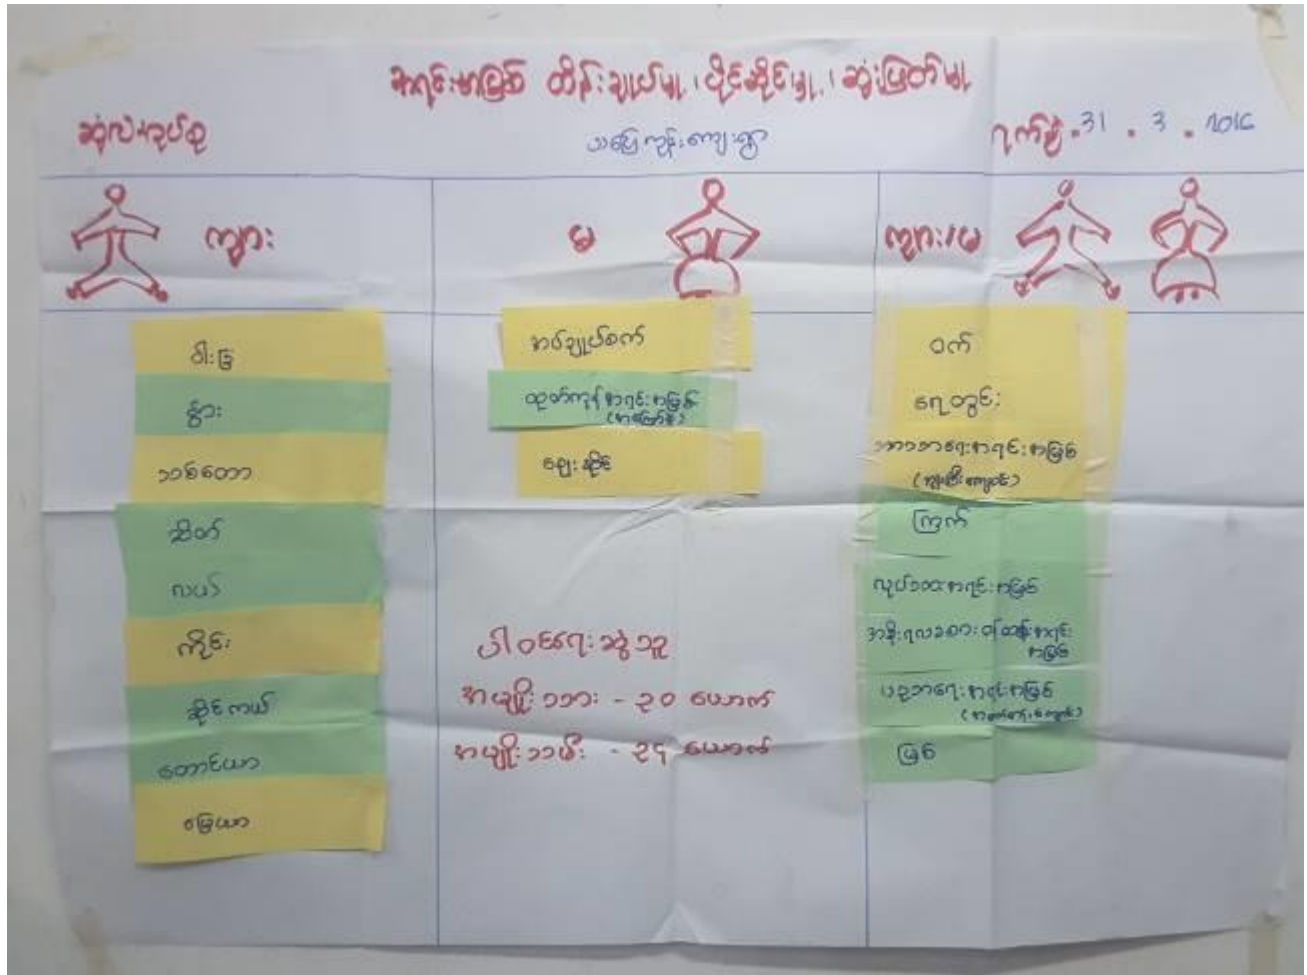 အရင်းအမြစ် ထိန်းချုပ်မှု၊ ပိုင်ဆိုင်မှု၊ ဆုံးဖြတ်မှု
သပြေကုန်းကျေးရွာ
ရက်စွဲ . 31 . 3 . 2016
ကျား
မ
ကျား/မ
ဝါးခြံ
နွား
သစ်တော
ဆိတ်
လယ်
ကိုင်း
ဆိုင်ကယ်
တောင်ယာ
မြေယာ
အပ်ချုပ်စက်
ထုတ်ကုန်အရင်းအမြစ်
ဈေးဆိုင်
ပါဝင်ဆွေးနွေးသူ
အမျိုးသား - ၃၀ ယောက်
အမျိုးသမီး - ၃၄ ယောက်
ဝက်
ရေတွင်း
ဘာသာရေးအရင်းအမြစ်
(ဘုန်းကြီးကျောင်း)
ကြက်
လုပ်သားအရင်းအမြစ်
အစိုးရလခစားဝန်ထမ်းအရင်း
အမြစ်
ပညာရေးအရင်းအမြစ်
(စာသင်ကျောင်း)
မြစ်